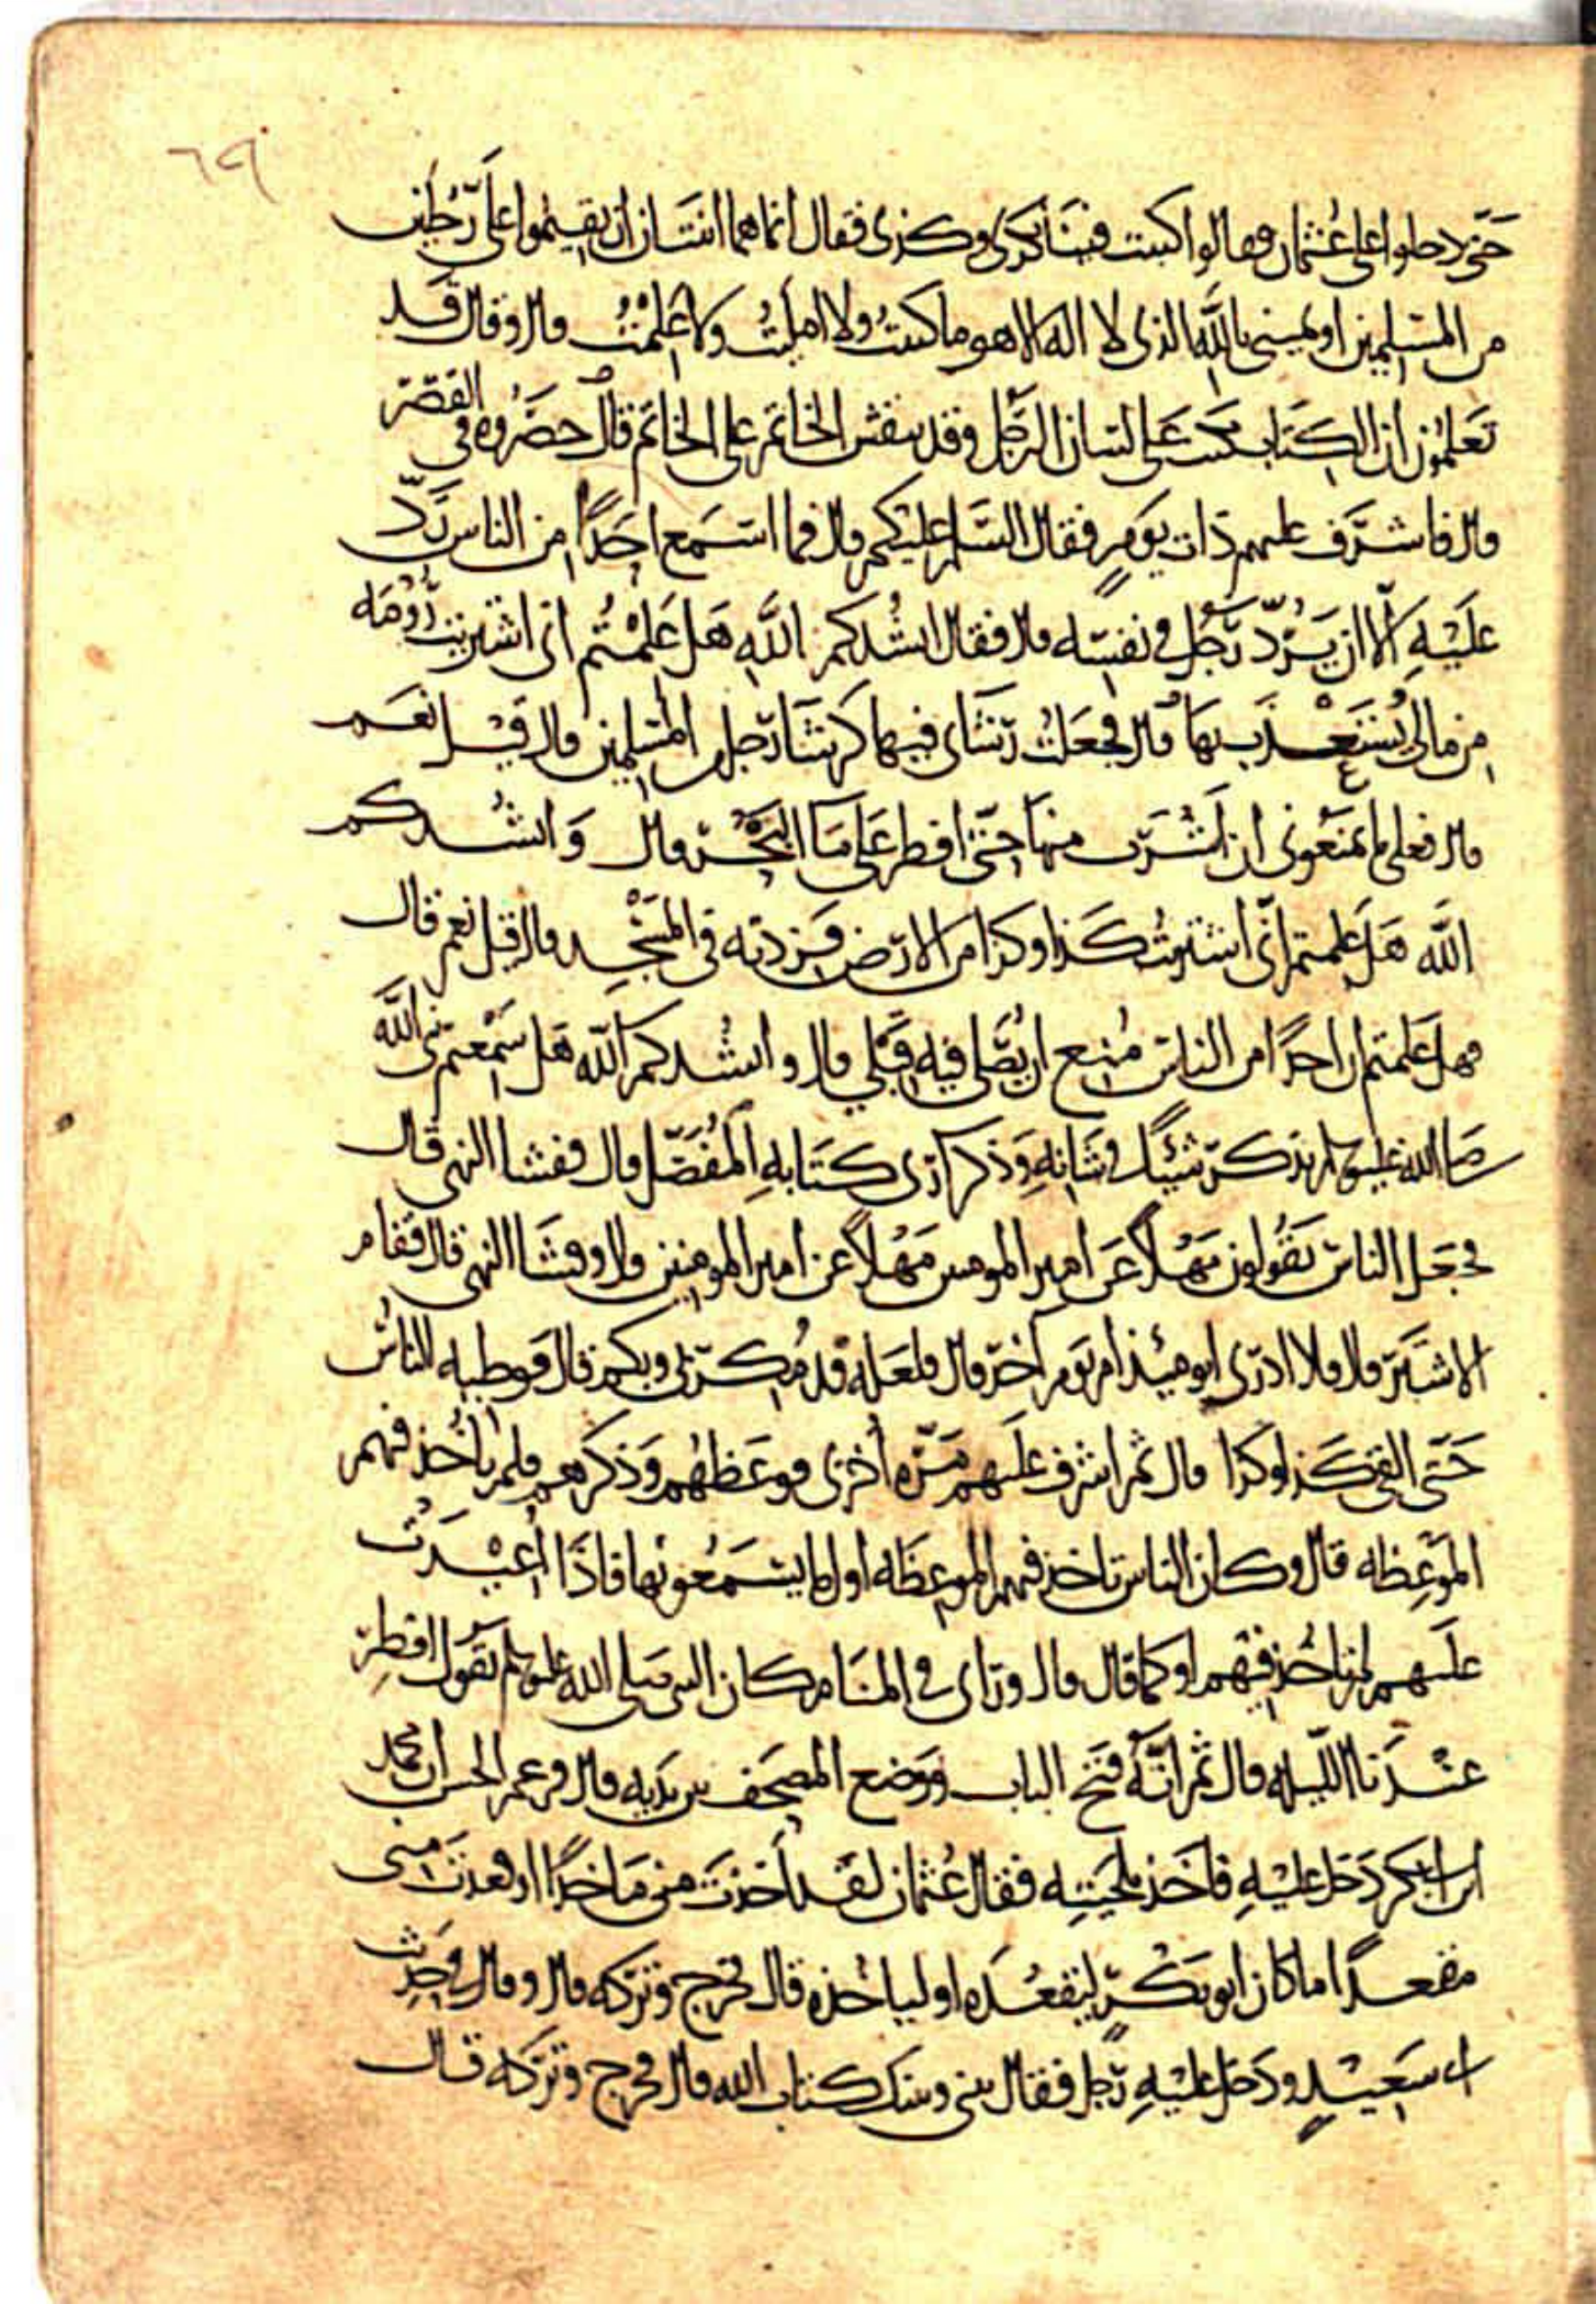 ٦٩
حتى دخلوا على عثمان فقالوا اكتبت فينا بكذى وكذى فقال انما هما اثنتان ان تقيموا على رجلين
من المسلمين او يميني بالله الذى لا اله الا هو ما كتبتُ ولا امليتُ ولا علمتُ قال وقال قد
تعلمون ان الكتاب يكتب على لسان الرجل وقد ينقش الخاتم على الخاتم قال حصروه في القصر
قال فاشرف عليهم ذات يوم فقال السلم عليكم قال فما استمع احدًا من الناس ردّ
عليه الا ان يردّ رجل في نفسه قال فقال انشدكم الله هل علمتم انى اشتريت رومه
من مالى يُستعذب بها قال فجعلت رشاى فيها كرشا رجل من المسلمين قال قيل نعم
قال فعلى ما تمنعونى ان اشرب منها حتى افطر على ما البحر قال وانشدكم
الله هل علمتم انى اشتريت كذا وكذا من الارض فزدته في المسجد قال قيل نعم قال
فهل علمتم ان احدًا من الناس مُنع ان يصلى فيه قبلي قال وانشدكم الله هل سمعتم نبي الله
صلى الله عليه وسلم يذكر شيئًا في شانه وذكر ارى كتابه المُفصّل قال ففشا النهى قال
فجعل الناس يقولون مهلًا عن امير المومنين مهلًا عن امير المومنين قال وفشا النهى قال فقام
الاشتر قال فلا ادرى ايوميئذ ام يوم آخر قال فلعله قد مُكر بى وبكم قال فوطيه الناس
حتى القى كذا وكذا قال ثم اشرف عليهم مرّه اخرى فوعظهم وذكرهم فلم ياخذ فيهم
الموعظه قال وكان الناس تاخذ فيهم الموعظه اول ما يسمعونها فاذا اُعيدت
عليهم لم ياخذ فيهم او كما قال قال وراى في المنام كان النبى صلى الله عليه وسلم يقول افطر
عندنا الليله قال ثم انّه فتح الباب ووضع المصحف بين يديه قال فزعم الحسن ان محمد
ابن ابى بكر دخل عليه فاخذ بلحيته فقال عثمان لقد اخذت منى ماخذًا او قعدت منى
مقعدًا ما كان ابو بكرٍ ليقعده او لياخذه قال فخرج وتركه قال وقال في حديث
ابى سعيدٍ ودخل عليه رجل فقال بينى وبينك كتاب الله قال فخرج وتركه قال